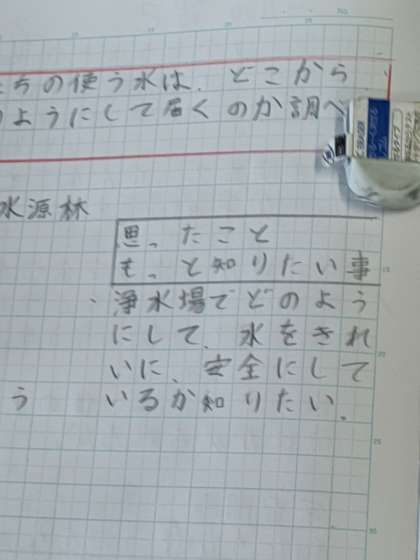 ちの使う水は、どこから
ようにして届くのか調べ
水源林
思ったこと
もっと知りたい事
・浄水場でどのよう
にして、水をきれ
いに、安全にして
いるか知りたい。
う